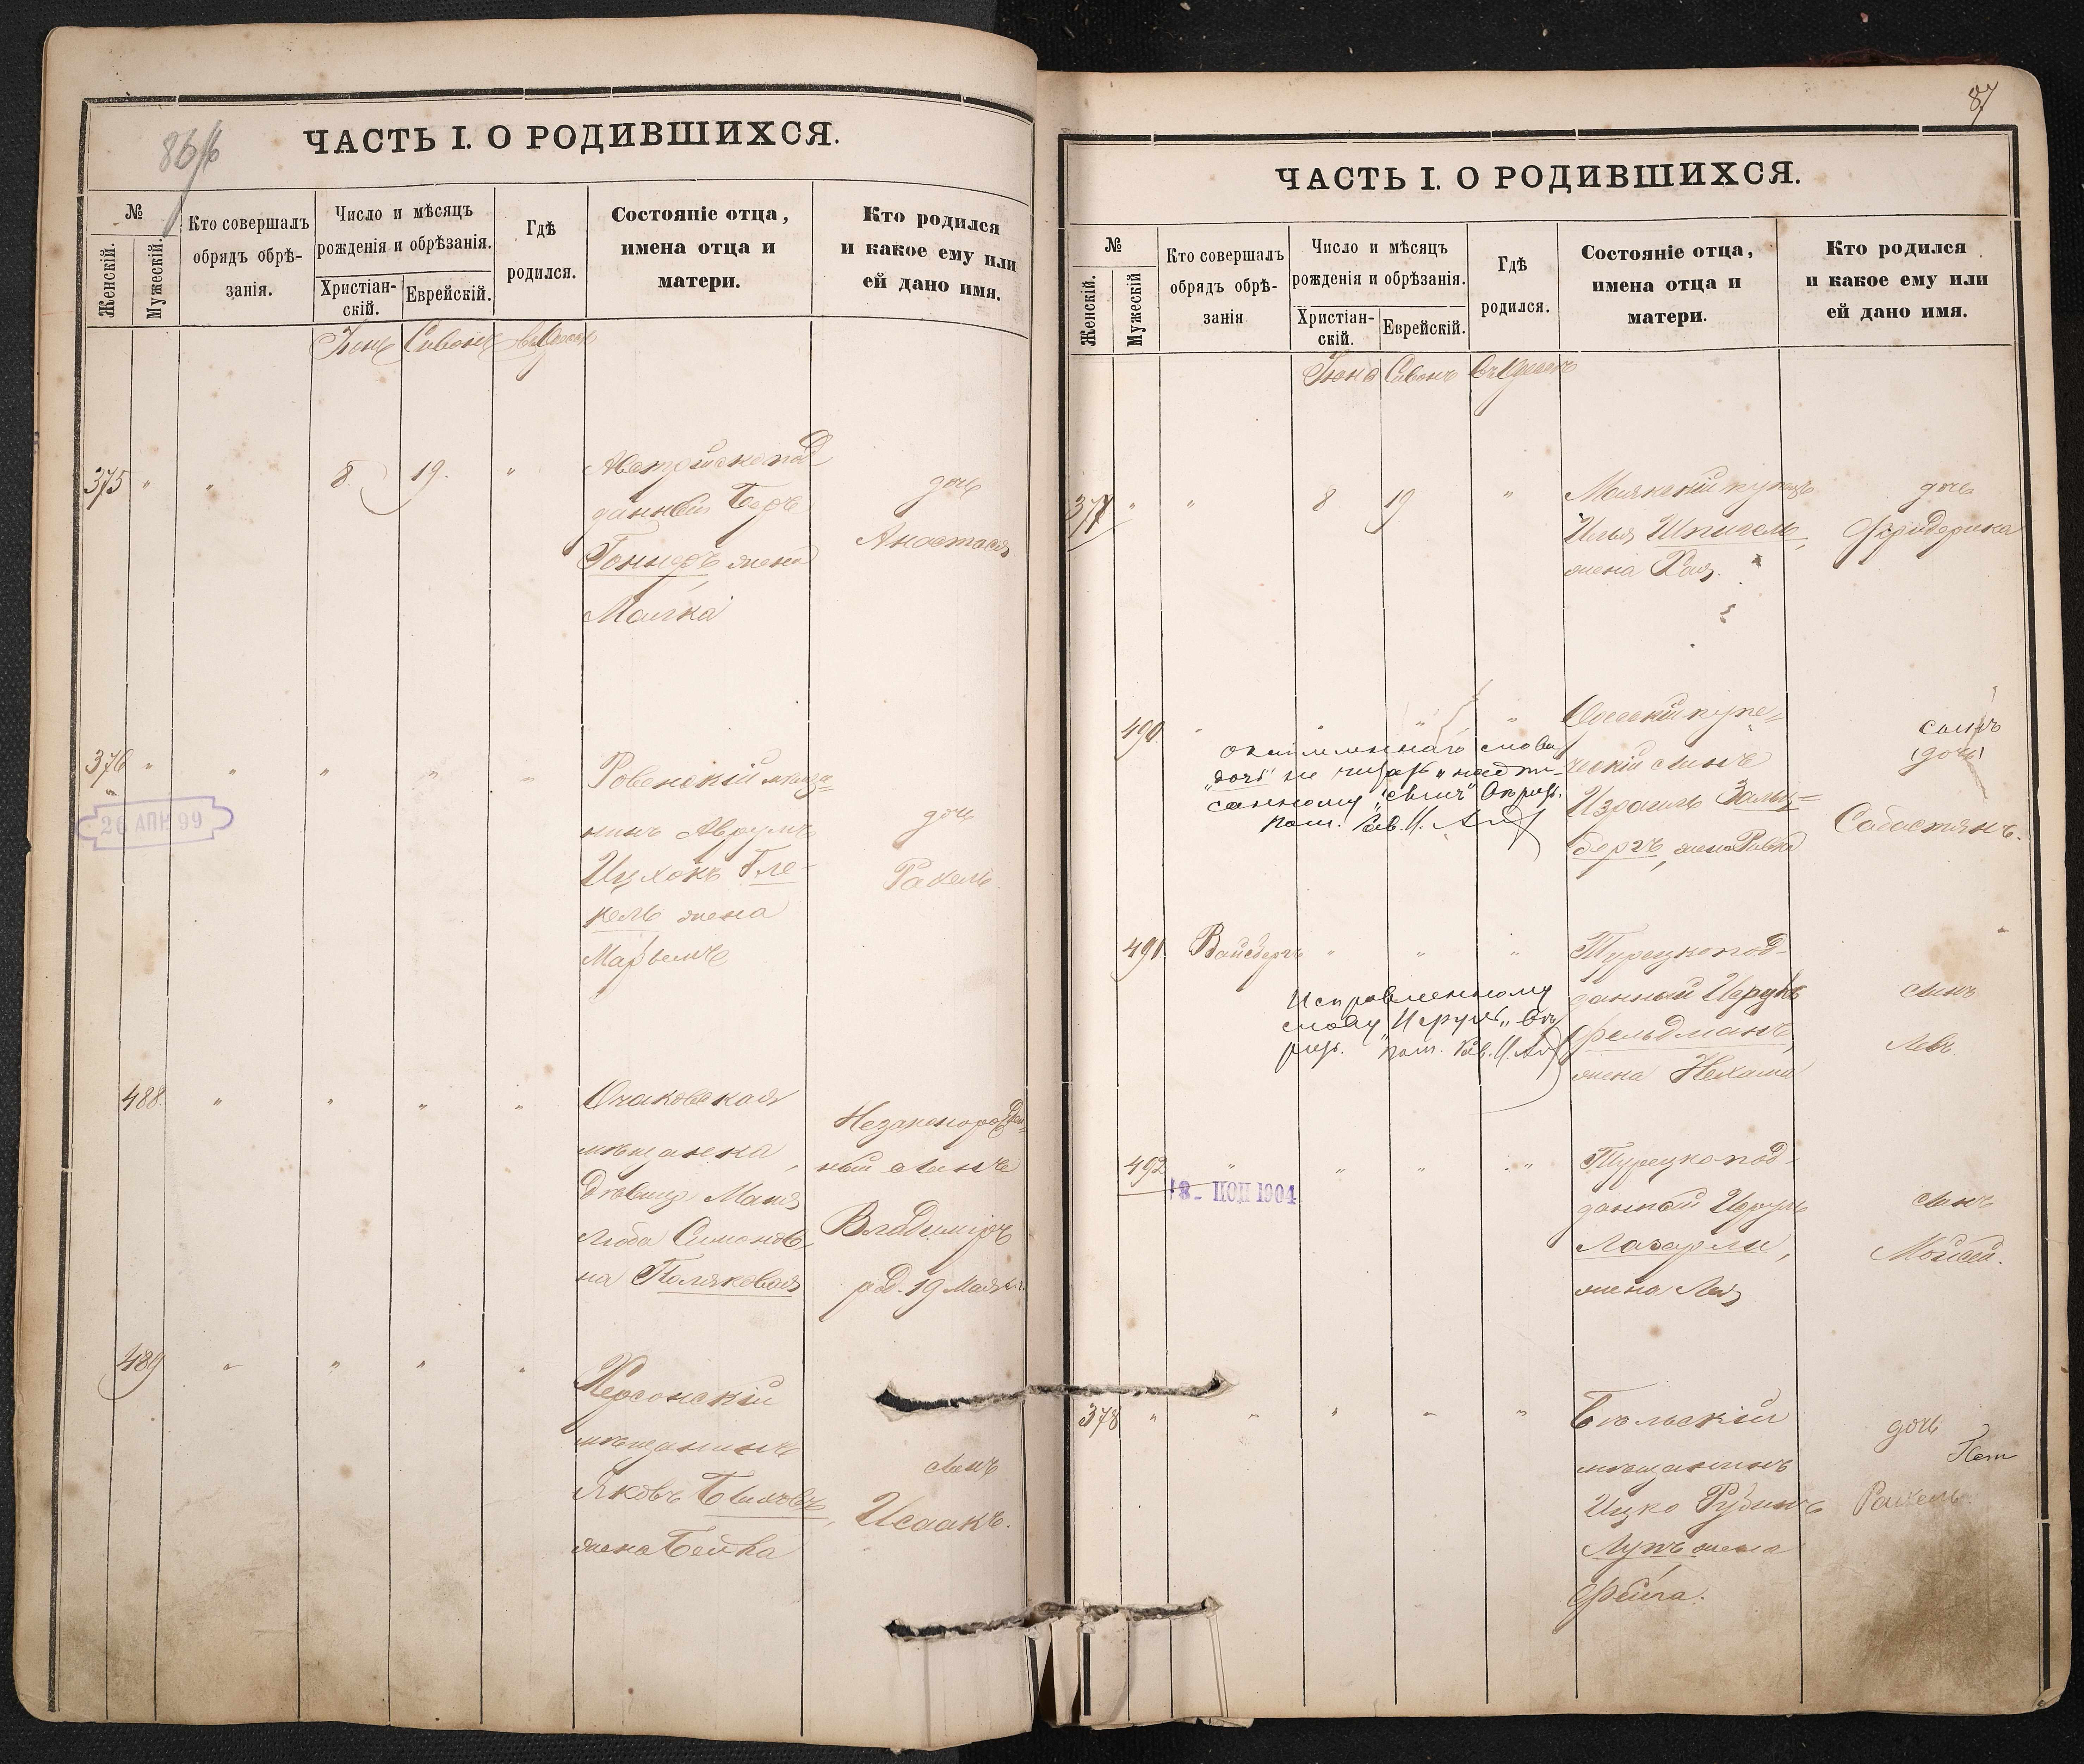 86
ЧАСТЬ I. О РОДИВШИХСЯ.
№
Женскій.
Мужескій.
Кто совершалъ
обрядъ обрѣ-
занія.
Число и мѣсяцъ
рожденія и обрѣзанія.
Христіан-
скій.
Еврейскій.
Гдѣ
родился.
Состояніе отца,
имена отца и
матери.
Кто родился
и какое ему или
ей дано имя.
Іюнь Сивонъ въ Одессѣ
375 " " 8. 19. "
Австрійскопод-
данный Беръ
Гоннеръ жена
Малка
дочь
Анастасія
376 " " " " "
26 АПР 99
Ровенскій мѣща-
нинъ Аврумъ
Ицхокъ Гле-
кель жена
Марьемъ
дочь
Рахель
488. " " " "
Очаковская
мѣщанка,
дѣвица Маня
Люба Симонов-
на Полякова
Незаконорожден-
ный сынъ
Владиміръ
род. 19 Мая
489 " " " "
Херсонскій
мѣщанинъ
Яковъ
жена Бейла
сынъ
Исаакъ.
87
ЧАСТЬ I. О РОДИВШИХСЯ.
№
Женскій.
Мужескій
Кто совершалъ
обрядъ обрѣ-
занія
Число и мѣсяцъ
рожденія и обрѣзанія.
Христіан-
скій.
Еврейскій.
Гдѣ
родился.
Состояніе отца,
имена отца и
матери.
Кто родился
и какое ему или
ей дано имя.
Іюнь Сивонъ въ Одессѣ
377 " " 8 19 "
Маякскій купецъ
Илья Шпигель,
жена Хая.
дочь
Фридерика
490. " " " "
слова
"дочь" не читать, надпи-
санному "сынъ"
пом. Рав.
Одесскій купе-
ческій сынъ
Израиль Зальц-
бергъ, жена Ривка
сынъ
(дочь)
Себастянъ.
491. Вайсбергъ " " "
Исправленному
слову "Исрулъ" вѣ-
рить. пом. Рав.
Турецкопод-
данный Исрулъ
Фельдманъ,
жена Нехама
сынъ
Левъ
492 " " " "
18 - ПОЛ 1904
Турецкопод-
данный Исруль
Лазарли,
жена Лея
сынъ
Мойсей.
378 " " " " "
Бѣльскій
мѣщанинъ
Ицко Рубинъ
жена
Фейга.
дочь
Рахель